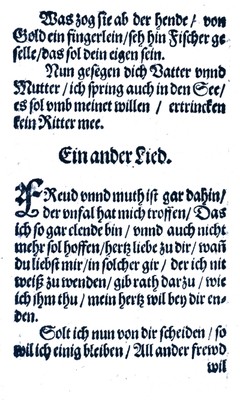 Was zog sie ab der hende / von
Gold ein fingerlein / seh hin Fischer ge
selle / das sol dein eigen sein.
Nun gesegen dich Vatter vnnd
Mutter / ich spring auch in den See /
es sol vmb meinet willen / ertrincken
kein Ritter mee.
Ein ander Lied.
FReud vnnd muth ist gar dahin /
der vnfal hat mich troffen / Das
ich so gar elende bin / vnnd auch nicht
mehr sol hoffen / hertz liebe zu dir / wañ
du liebst mir / in solcher gir / der ich nit
weiß zu wenden / gib rath darzu / wie
ich jhm thu / mein hertz wil bey dir en-
den.
Solt ich nun von dir scheiden / so
wil ich einig bleiben / All ander frewd
wil